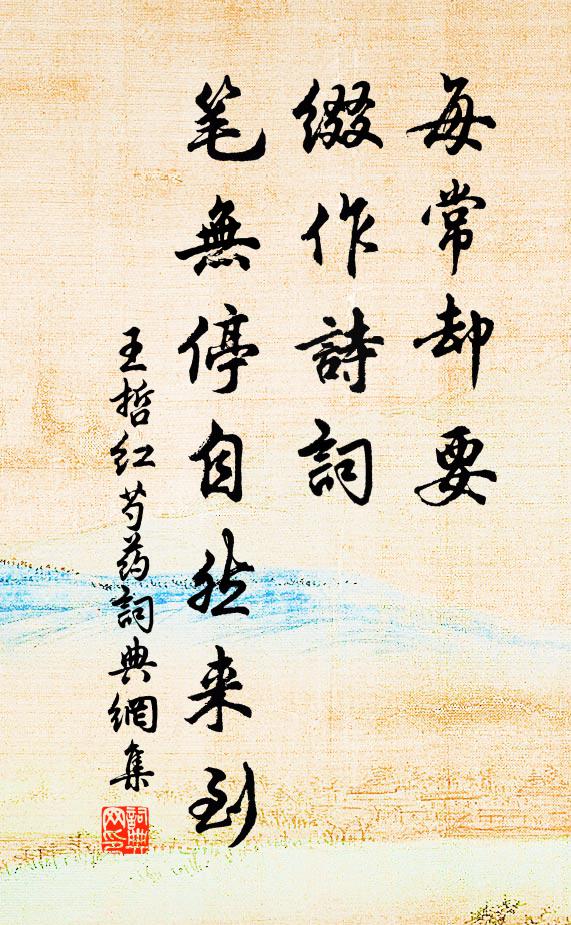 每常却要
缀作詩詞
笔無停自然来到
王哲红芍药詞典網集
詞典网印